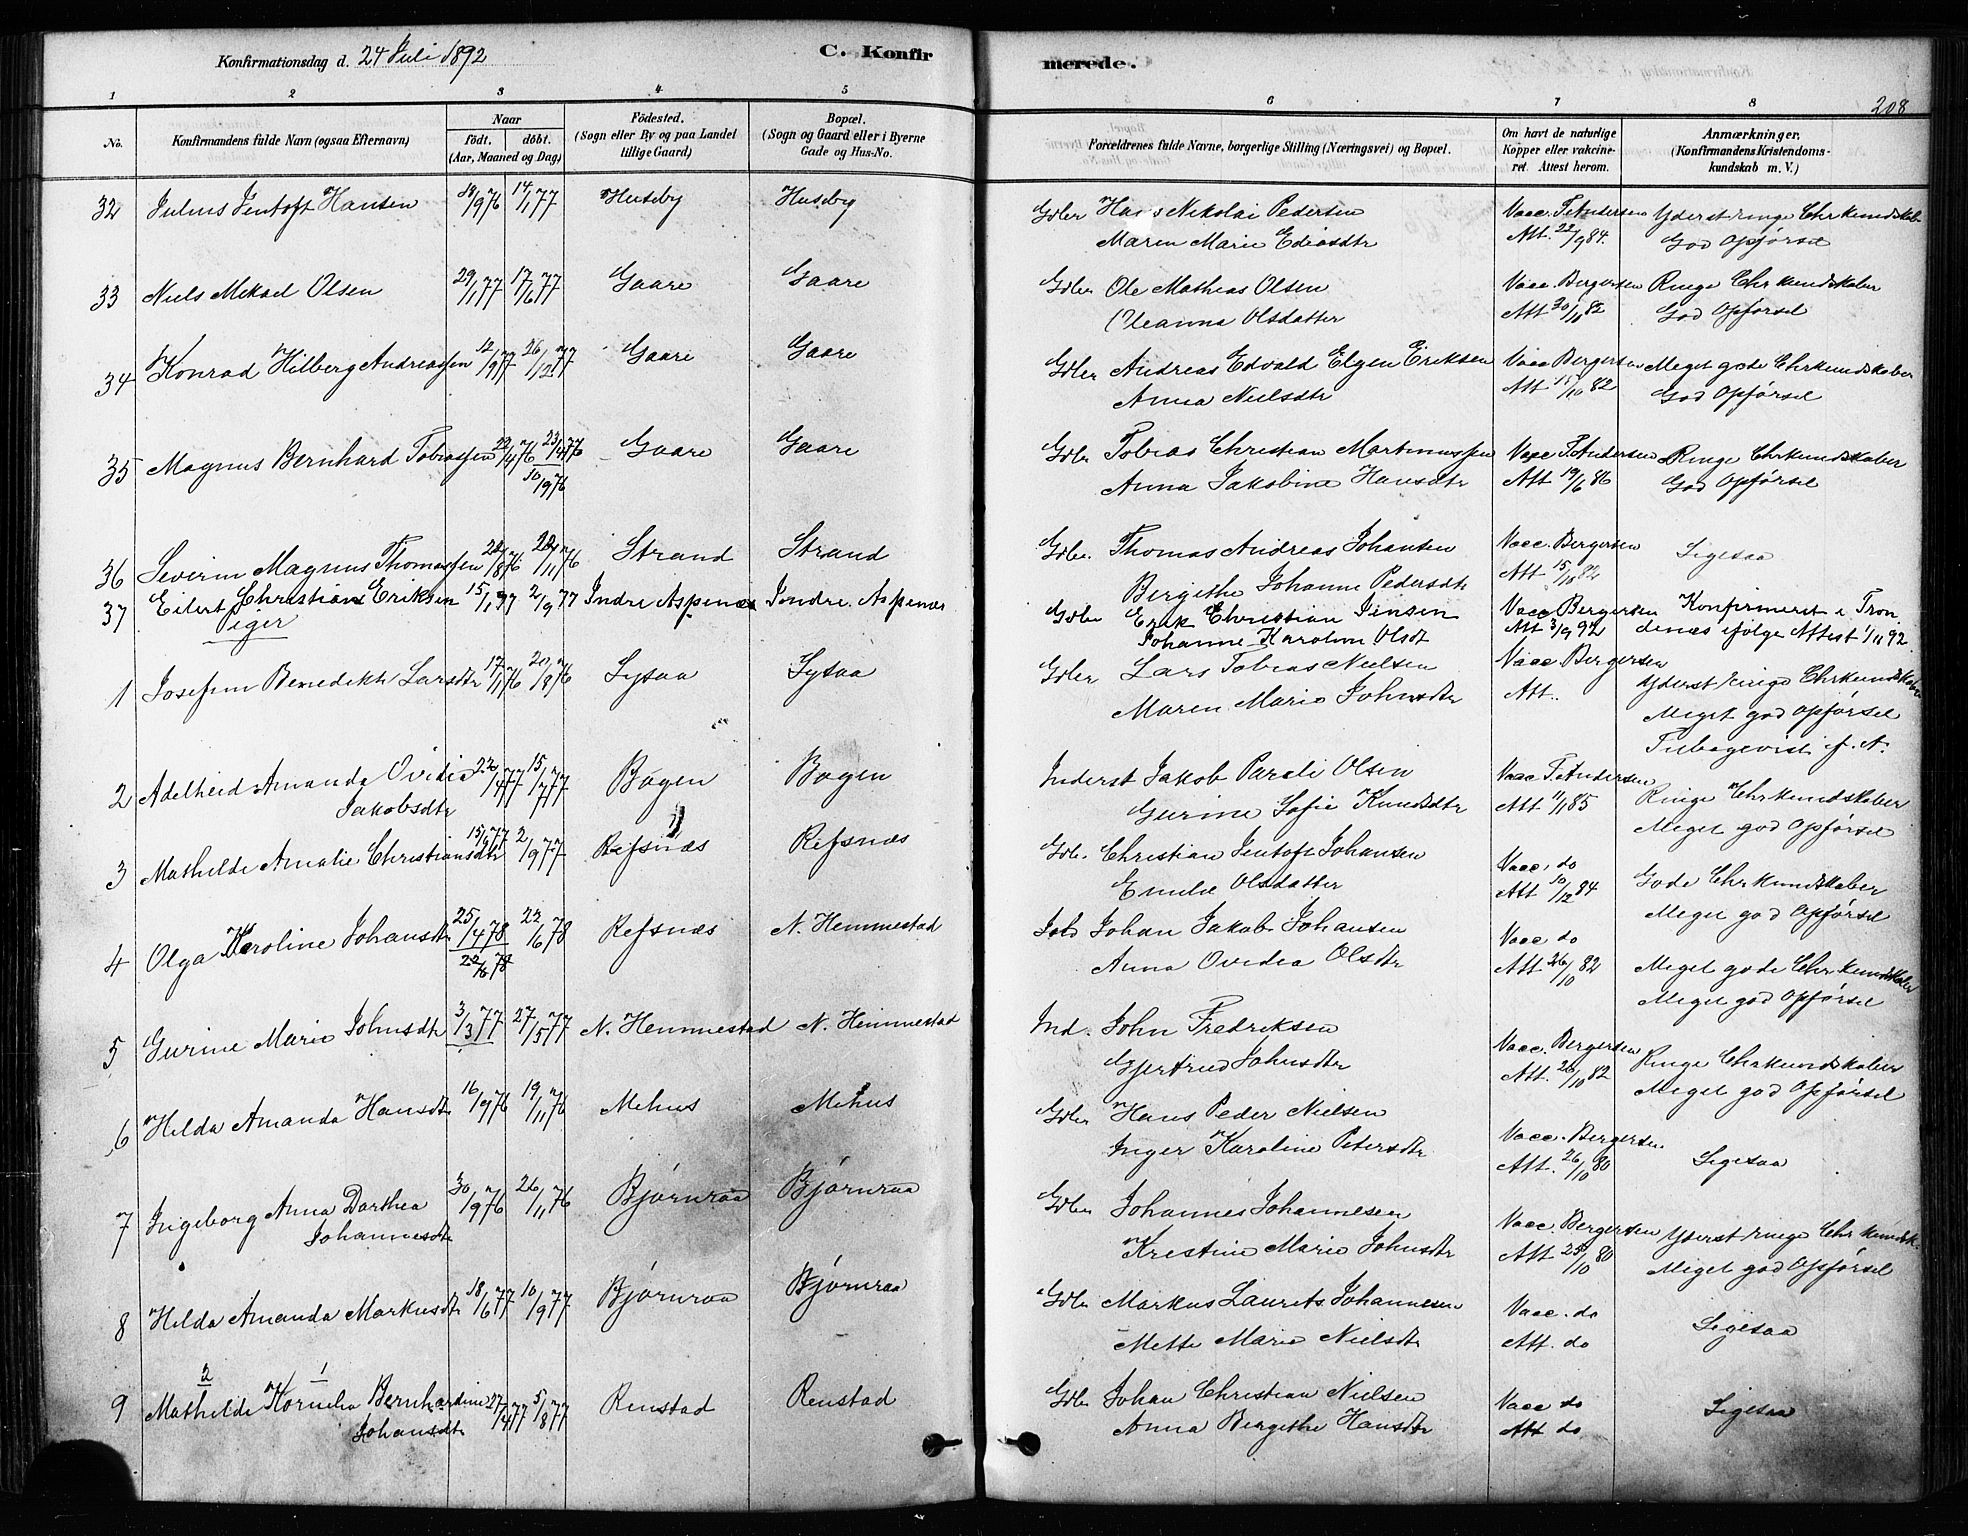 Konfirmationsdag d. 24 Juli 1892
C. Konfirmerede.
208
1 2 3 4 5 6 7 8
No.
Konfirmandens fulde Navn (ogsaa Efternavn)
Naar
født. døbt.
(Aar, Maaned og Dag)
Födested.
(Sogn eller By og paa Landet
tillige Gaard)
Bopæl.
(Sogn og Gaard eller i Byerne
Gade og Hus-No.
Forældrenes fulde Navne, borgerlige Stilling (Næringsvei) og Bopæl.
Om havt de naturlige
Kopper eller vakcineret. Attest herom.
Anmærkninger.
(Konfirmandens Kristendomskundskab m. V.)
32 Julius Jentoft Hansen 18/9 76 14/1 77 Huseby Huseby Gdbr Hans Nikolai Pedersen Vacc. T. Andersen Yderst ringe Chrkundskab
Maren Marie Att. 22/9 84. God Opførsel
33 Niels Mikael Olsen 29/1 77 17/6 77 Gaare Gaare Gdbr Ole Mathias Olsen Vacc. Bergersen Ringe Chrkundskaber
Olsdatter Att 30/10 82 God Opførsel
34 Konrad Hilberg Andreassen 12/9 77 26/12 77 Gaare Gaare Gdbr Andreas Edvald Elgen Eriksen Vacc Bergersen Meget gode Chrkundskaber
Anna Nielsdtr Att 15/10 82 God Opførsel
35 Magnus Bernhard Tobiassen 22/4 76 23/4 76 Gaare Gaare Gdbr Tobias Christian Martinussen Vacc T. Andersen Ringe Chrkundskaber
10/9 76 Anna Jakobine Hansdtr Att 19/6 86 God Opførsel
36 Severin Magnus Thomassen 22/8 76 22/11 76 Strand Strand Gdbr. Thomas Andreas Johansen Vacc. Bergersen Ligesaa
Bergithe Johanne Pedersdtr Att 15/10 82
37 Eilert Christian Eriksen 15/1 77 2/9 77 Indre Aspenæs Indre Aspenæs Gdbr Erik Christian Jensen Vacc Bergersen Konfirmeret i Tron
Johanne Karoline Olsdt Att 3/9 92 denæs ifølge Attest 1/11 92
Piger
1 Josefine Benedikte Larsdtr 17/1 76 20/8 76 Lysaa Lysaa Gdbr Lars Tobias Nielsen Vacc Bergersen Yderst ringe Chrkundskaber
Maren Marie Johnsdtr Att. Meget god Opførsel
Tilbagevist f. A.
2 Adelheid Amanda Ovidia 22/4 77 15/7 77 Bogen Bogen Inderst Jakob Parali Olsen Vacc T. Andersen Ringe Chrkundskaber
Jakobsdtr Gurine Sofie Knudsdtr Att 11/1 85 Meget god Opførsel
3 Mathilde Amalie Christiansdtr 15/6 77 2/9 77 Refsnæs Refsnæs Gdb. Christian Jentoft Johansen Vacc. do Gode Chrkundskaber
Emilie Olsdatter Att 10/12 84 Meget god Opførsel
4 Olga Karoline Johansdtr 25/4 78 22/6 78 Refsnæs N. Hemmestad Johan Jakob Johansen Vacc do Meget gode Chrkundskaber
22/6 78 Anna Ovidia Olsdtr Att 26/10 82 Meget god Opførsel
5 Gurine Marie Johnsdtr 3/3 77 27/5 77 N. Hemmestad N. Hemmestad Ind. John Fredriksen Vacc. Bergersen Ringe Chrkundskaber
Gjertrud Johnsdtr Att. 26/10 82 Meget god Opførsel
6 Hilda Amanda Hansdtr 16/9 76 19/11 76 Mehus Mehus Gdbr Hans Peder Nielsen Vacc. Bergersen Ligesaa
Inger Karoline Petersdtr Att. 26/10 80
7 Ingeborg Anna Dorthea 30/9 76 26/11 76 Bjørnraa Bjørnraa Gdbr Johannes Johannesen Vacc. Bergersen Yderst ringe Chrkundsk.
Johannesdtr Kristine Marie Johnsdtr Att 25/10 80 Meget god Opførsel
8 Hilda Amanda Markusdtr 18/6 77 10/9 77 Bjørnraa Bjørnraa Gdbr Markus Laurits Johannesen Vacc. do Ligesaa
Mette Marie Nielsdtr Att. do
2 1
9 Mathilde Kornelia Bernhardine 27/4 77 5/8 77 Renstad Renstad Gdbr Johan Christian Nielsen Vacc do Ligesaa
Johansdtr Anna Bergithe Hansdtr Att do